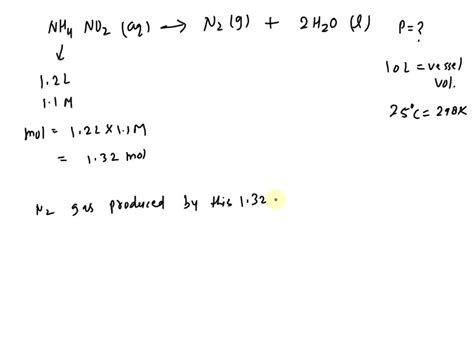 NH4 NO2 (aq) → N2 (g) + 2H2O (l) P = ?
↓
1.2L
1.1 M
10L = vessel vol.
25°C = 298K
mol = 1.2L × 1.1M
= 1.32 mol
N2 gas produced by this 1.32